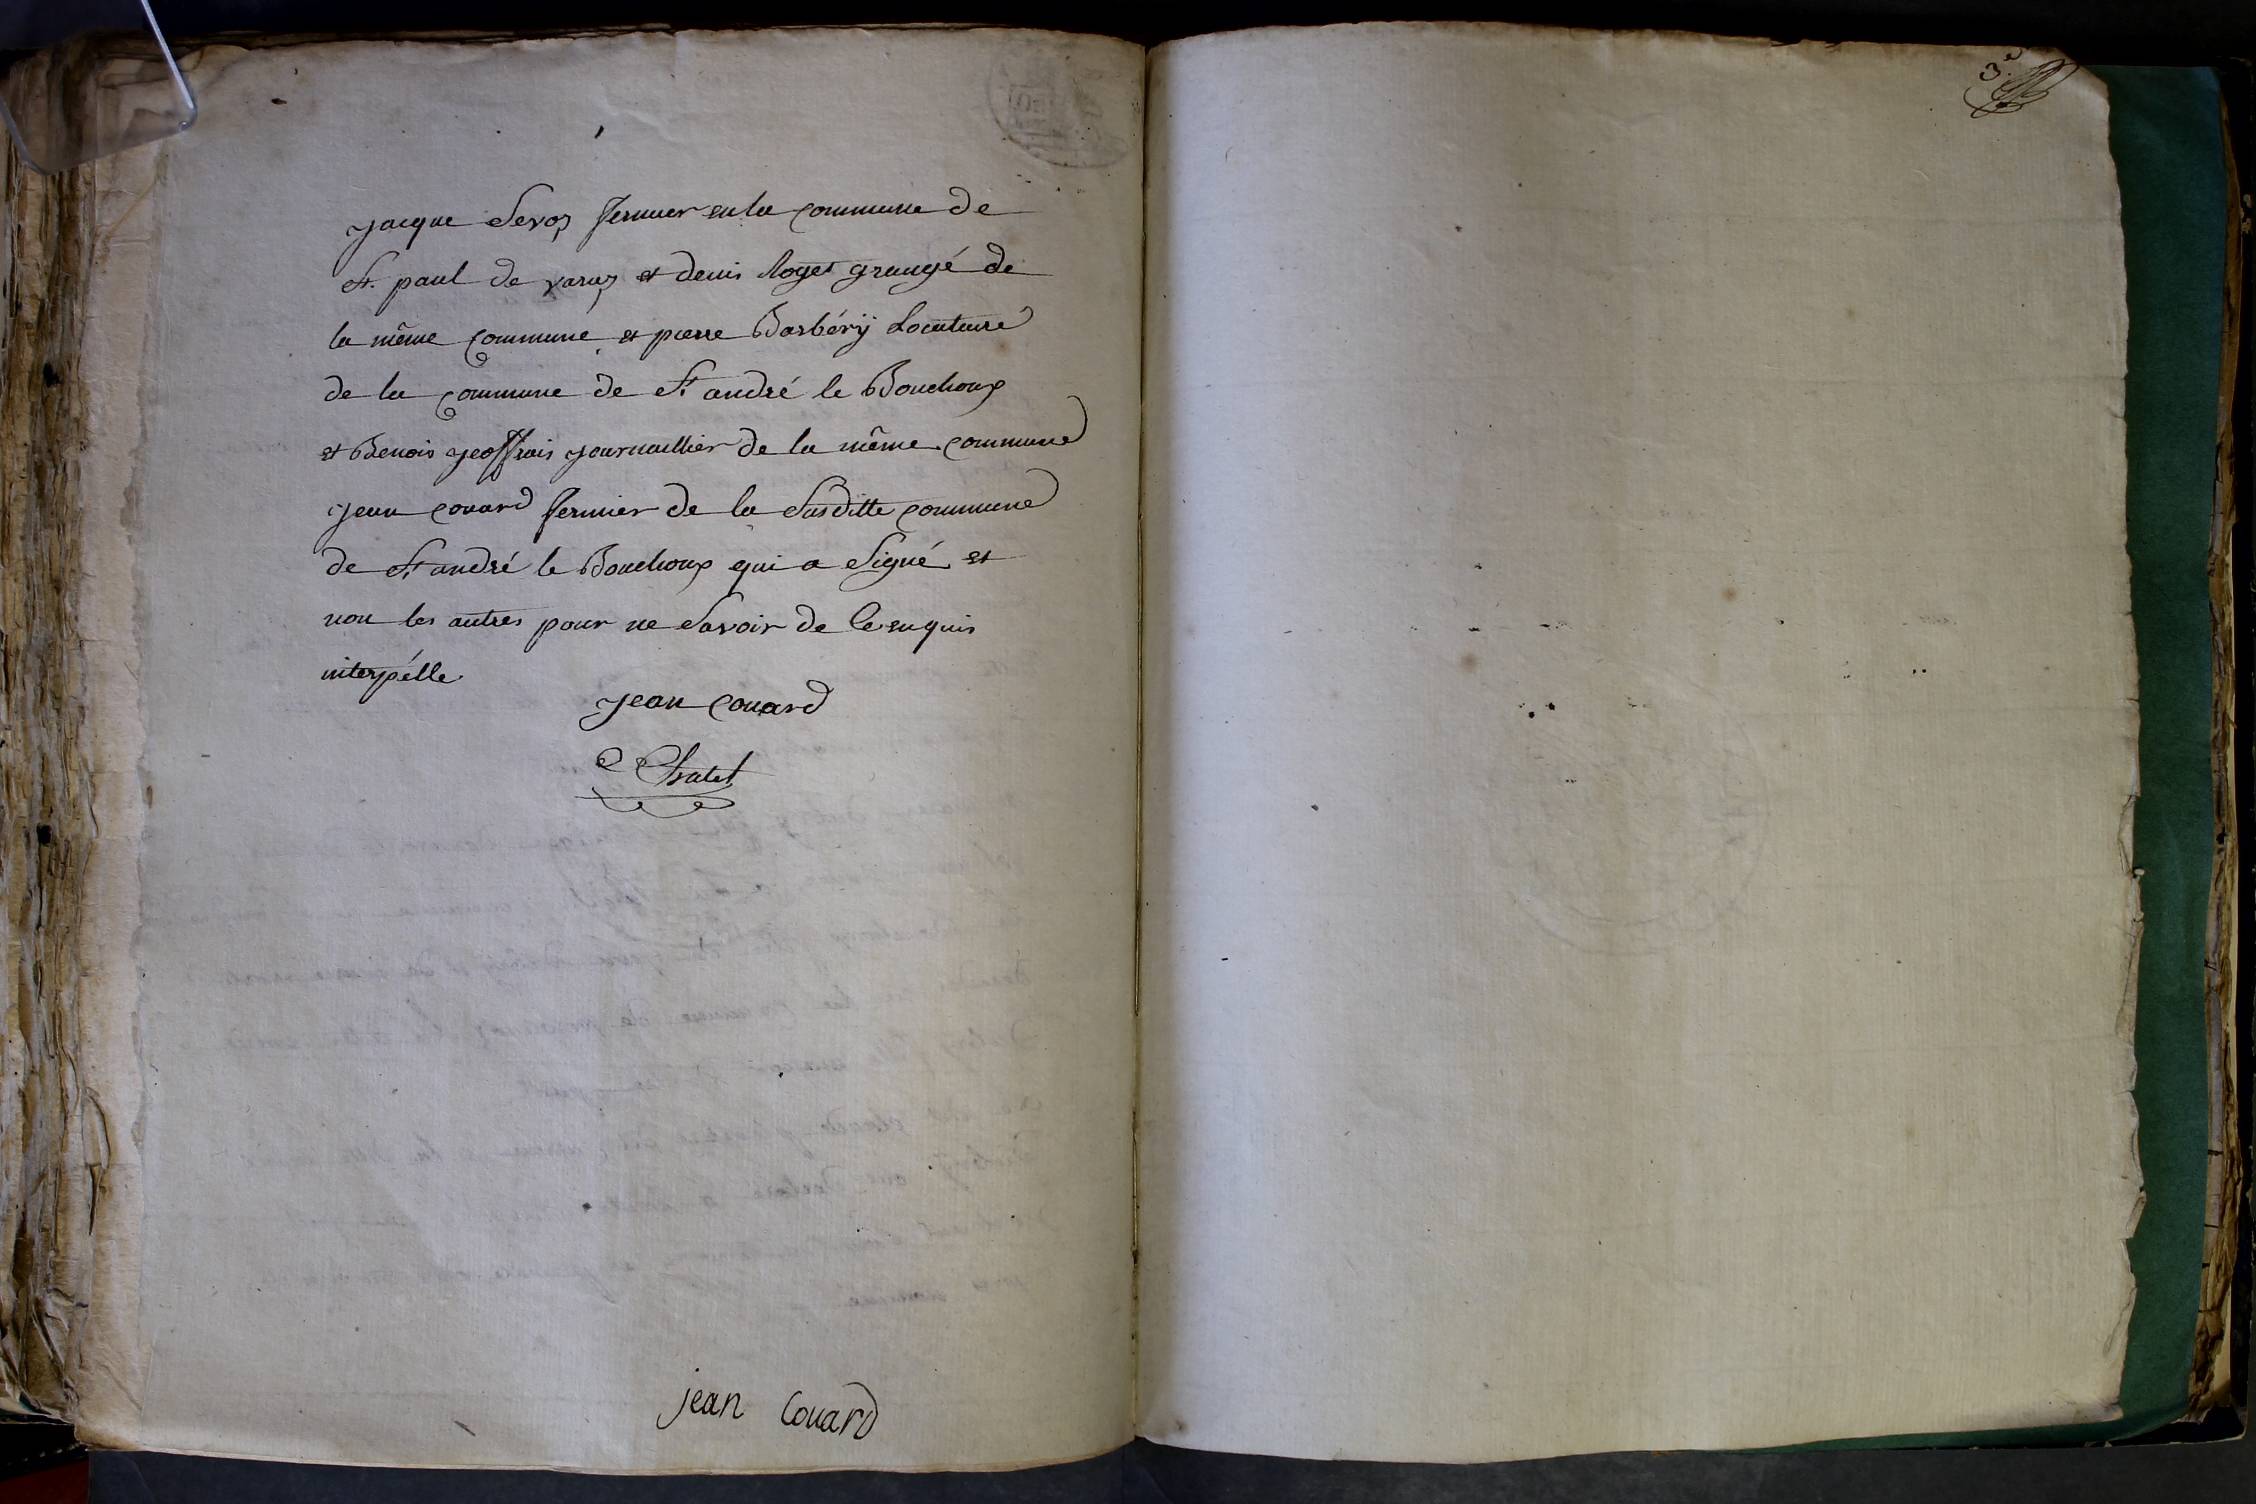 jacque Sevoz fermier en la commune de
St. paul de varaz et denis Roget grangé de
la même commune et pierre Barbérÿ Locataire
de la commune de St andré le Bouchoux
et Benois jeoffrais journaillier de la même commune
jean Couard fermier de la Susditte commune
de St andré le Bouchoux qui a Signé et
non les autres pour ne Savoir de ce enquis
interpéllé
jean Couard
Chalel
jean Couard
3e